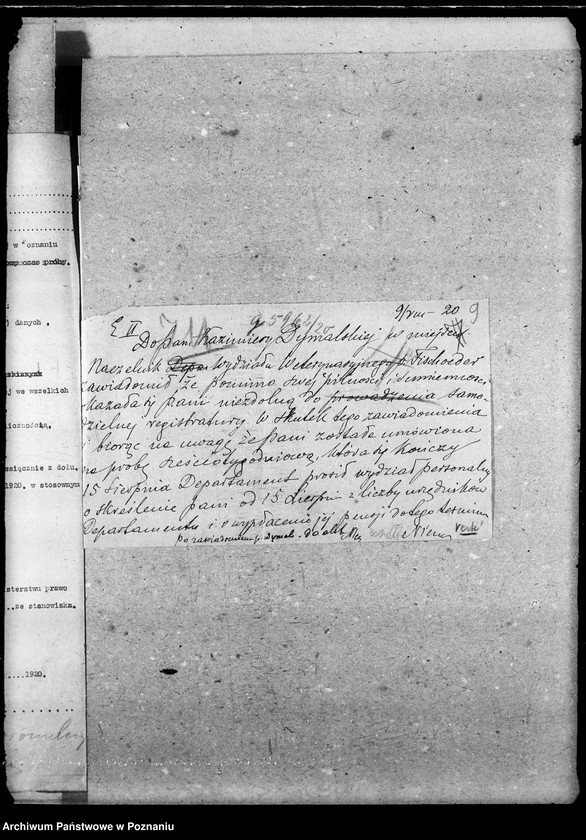 w Poznaniu
podczas próby.
danych,
we wszelkich
liczności,
miesięcznie z dołu.
1920. w stosownym
isterstwu prawo
..ze stanowiska.
....1920.
E II
9/VIII - 20
9
Do Pani Kazimiery Dymalskiej w miejscu
Naczelnik Wydziału Weterynaryjnego p. Fischoeder
zawiadomił że pomimo swej pilności i sumienności
okazała się pani niezdolną do prowadzenia samo-
dzielnej registratury. W skutek tego zawiadomienia
i biorąc na uwagę, że pani została umówiona
na próbę sześciotygodniową, która się kończy
15 sierpnia Departament prosił wydział personalny
o skreślenie pani od 15 sierpnia z liczby urzędników
Departamentu i o wypłacenie jej pensji do tego terminu
po zawiadomieniu p. Dymal. do akt
verte
Archiwum Państwowe w Poznaniu